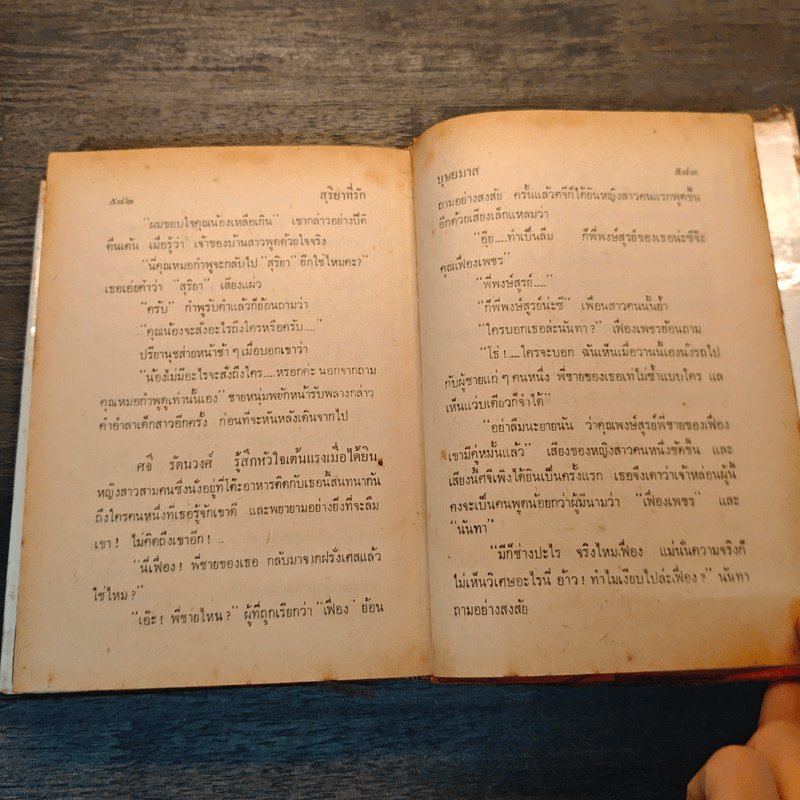 ๕๘๒ สุริยาที่รัก
"ผมขอบใจคุณน้องเหลือเกิน" เขากล่าวอย่างปีติ
ตื่นเต้น เมื่อรู้ว่า เจ้าของบ้านสาวพูดด้วยใจจริง
"นี่คุณหมอกำพูจะกลับไป "สุริยา" อีกใช่ไหมคะ?"
เธอเอ่ยคำว่า "สุริยา" เสียงแผ่ว
"ครับ" กำพูรับคำแล้วก็ย้อนถามว่า
"คุณน้องจะสั่งอะไรถึงใครหรือครับ....."
ปรียานุชส่ายหน้าช้า ๆ เมื่อบอกเขาว่า
"น้องไม่มีอะไรจะสั่งถึงใคร.....หรอกค่ะ นอกจากถาม
คุณหมอกำพูดูเท่านั้นเอง" ชายหนุ่มพยักหน้ารับพลางกล่าว
คำอำลาเด็กสาวอีกครั้ง ก่อนที่จะหันหลังเดินจากไป
ศจี รัตนวงศ์ รู้สึกหัวใจเต้นแรงเมื่อได้ยิน
หญิงสาวสามคนซึ่งนั่งอยู่ที่โต๊ะอาหารติดกับเธอนี้สนทนากัน
ถึงใครคนหนึ่งที่เธอรู้จักเขาดี และพยายามอย่างยิ่งที่จะลืม
เขา! ไม่คิดถึงเขาอีก! ..
"นี่เฟื่อง! พี่ชายของเธอ กลับมาจากฝรั่งเศสแล้ว
ใช่ไหม?"
"เอ๊ะ! พี่ชายไหน?" ผู้ที่ถูกเรียกว่า "เฟื่อง" ย้อน
บุษยมาส ๕๘๓
ถามอย่างสงสัย ครั้นแล้วศจีก็ได้ยินหญิงสาวคนแรกพูดขึ้น
อีกด้วยเสียงเล็กแหลมว่า
"อุ๊ย.....ทำเป็นลืม ก็พี่พงษ์สูรย์ของเธอน่ะซีจ๊ะ
คุณเฟื่องเพชร"
"พี่พงษ์สูรย์....."
"ก็พี่พงษ์สูรย์น่ะซี" เพื่อนสาวคนนั้นย้ำ
"ใครบอกเธอล่ะนันทา?" เฟื่องเพชรย้อนถาม
"โธ่!.....ใครจะบอก ฉันเห็นเมื่อวานนี้เองนั่งรถไป
กับผู้ชายแก่ ๆ คนหนึ่ง พี่ชายของเธอเท่ไม่ซ้ำแบบใคร แล
เห็นแว่บเดียวก็จำได้"
"อย่าลืมนะยายนัน ว่าคุณพงษ์สูรย์พี่ชายของเฟื่อง
เขามีคู่หมั้นแล้ว" เสียงของหญิงสาวคนหนึ่งขัดขึ้น และ
เสียงนี้ศจีเพิ่งได้ยินเป็นครั้งแรก เธอจึงเดาว่าเจ้าหล่อนผู้นี้
คงจะเป็นคนพูดน้อยกว่าผู้มีนามว่า "เฟื่องเพชร" และ
"นันทา"
"มีก็ช่างปะไร จริงไหมเฟื่อง แม่นั่นความจริงก็
ไม่เห็นวิเศษอะไรนี่ อ้าว! ทำไมเงียบไปล่ะเฟื่อง?" นันทา
ถามอย่างสงสัย